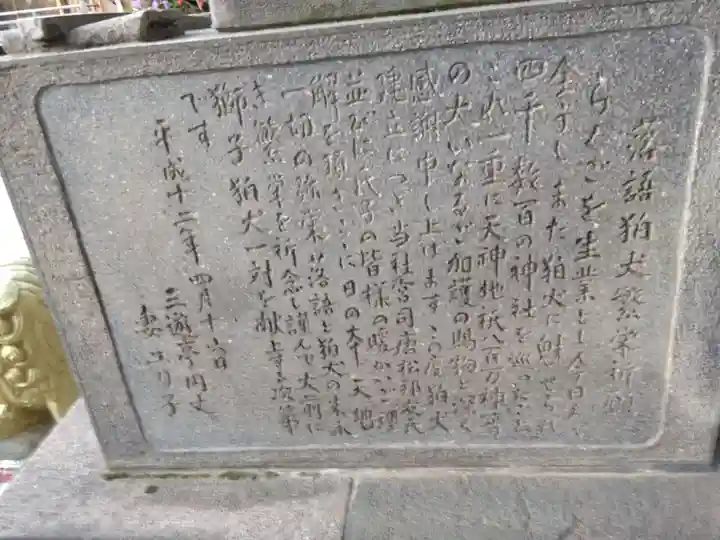 落語狛犬繁栄祈願
らくごを生業とし今日え
全なしまた狛犬に魅せられ
四千数百の神社を巡ったこと
これ一重に天神地祇八百万神等
の大いなるご加護の賜物と深く
感謝申し上げますこの度狛犬
建立につき当社宮司唐松郁夫氏
並びに氏子の皆様の暖かいご理
解を頂きここに日の本一天地
一切の弥栄落語と狛犬の末永
き繁栄を祈念し謹んで大前に
獅子狛犬一対を献上する次第
です
平成十二年四月十六日
三遊亭円丈
妻ユリ子